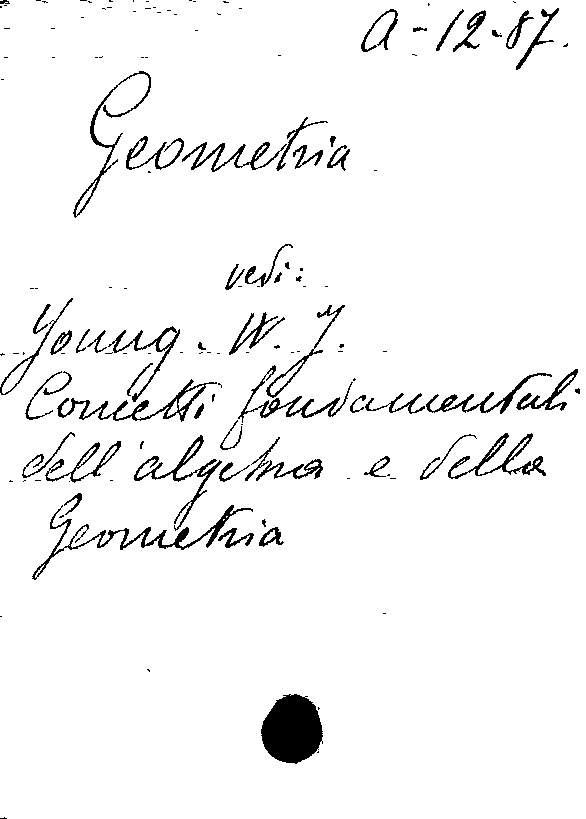 A-12-87.
Geometria
vedi:
Young. W. J.
Concetti fondamentali
dell'algebra e della
Geometria